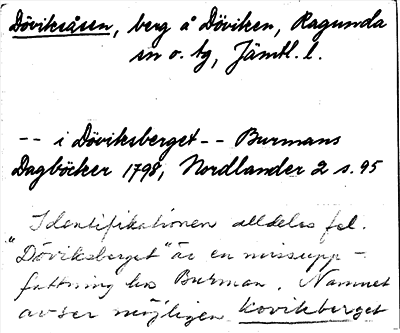 Döviksåsen, berg å Döviken, Ragunda
sn o. tg, Jämtl. l.
-- i Döviksberget -- Burmans
Dagböcker 1798, Nordlander 2 s. 95
Identifikationen alldeles fel.
"Döviksberget" är en missupp-
fattning hos Burman. Namnet
avser möjligen Kovikberget